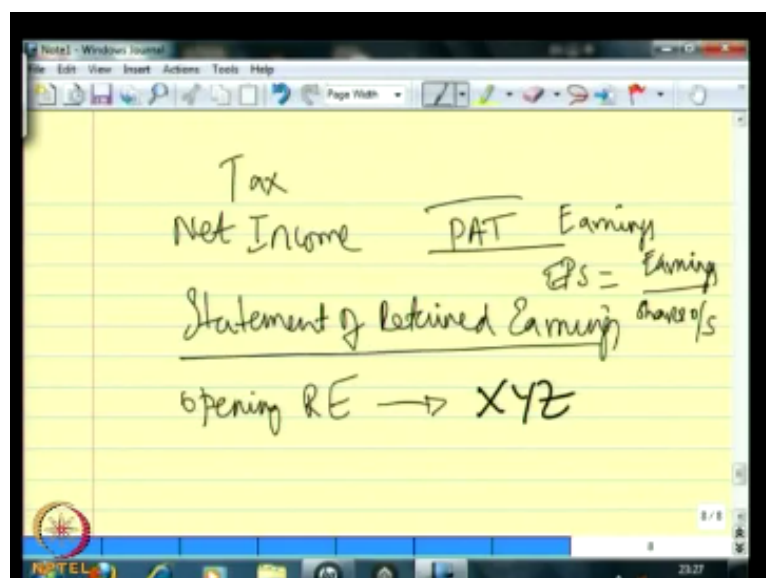 Note1 - Windows Journal
File Edit View Insert Actions Tools Help
Page Width
Tax
Net Income PAT Earnings
EPS = Earnings
Shares o/s
Statement of Retained Earnings
opening RE → XYZ
8/8
8
NPTEL
23:27